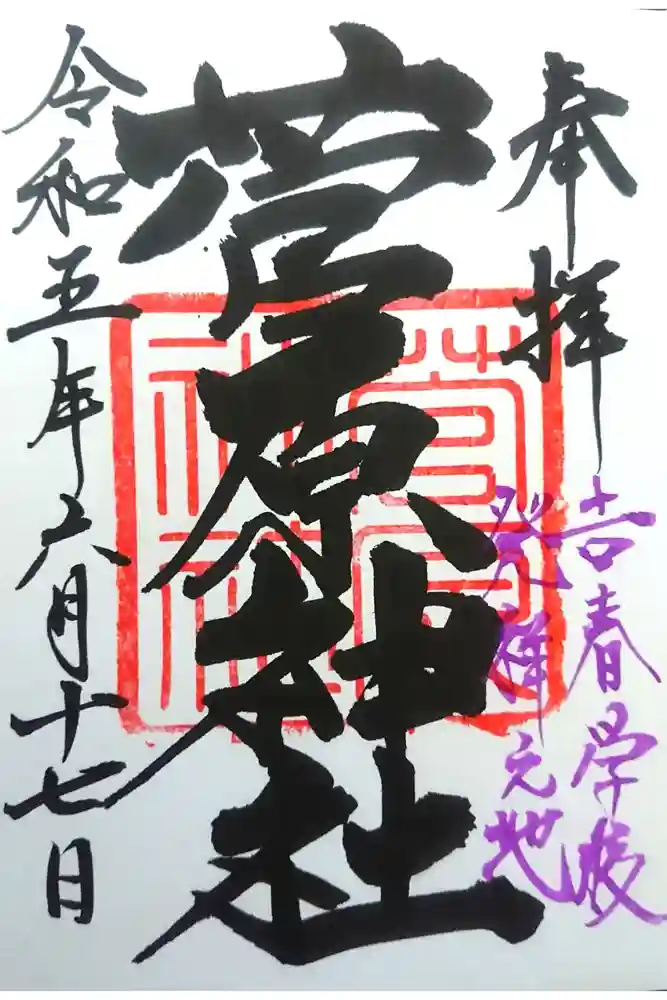 奉拝
告春学校
発祥之地
菅原神社
令和五年六月十七日